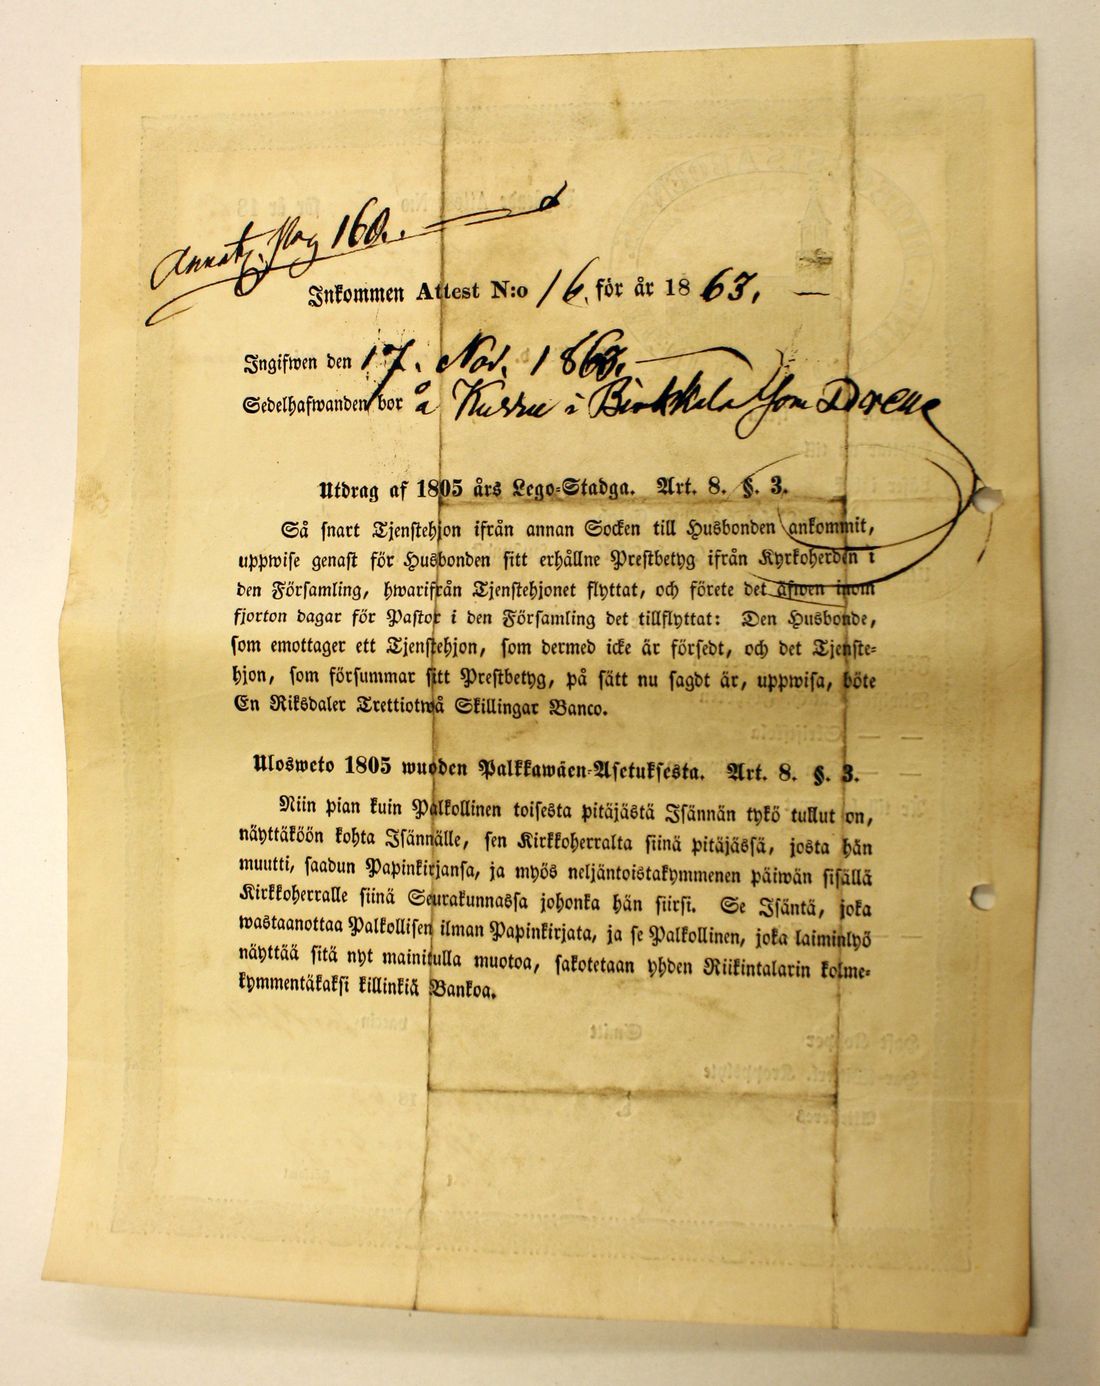 Annot. Pag 160.
Inkommen Attest N:o 16. för år 1863.
Ingifwen den 17. Nov. 1863.
Sedelhafwanden bor å Kurru i Birkkala som Dreng
Utdrag af 1805 års Lego-Stadga. Art. 8. §. 3.
Så snart Tjenstehjon ifrån annan Socken till Husbonden ankommit,
uppwise genast för Husbonden sitt erhållne Prestbetyg ifrån Kyrkoherden i
den Församling, hwarifrån Tjenstehjonet flyttat, och förete det äfwen inom
fjorton dagar för Pastor i den Församling det tillflyttat: Den Husbonde,
som emottager ett Tjenstehjon, som dermed icke är försedt, och det Tjenste-
hjon, som försummar sitt Prestbetyg, på sätt nu sagdt är, uppwisa, böte
En Riksdaler Trettiotwå Skillingar Banco.
Ulosweto 1805 wuoden Palkkawäen-Asetuksesta. Art. 8. §. 3.
Niin pian kuin Palkollinen toisesta pitäjästä Isännän tykö tullut on,
näyttäköön kohta Isännälle, sen Kirkkoherralta siinä pitäjässä, josta hän
muutti, saadun Papinkirjansa, ja myös neljäntoistakymmenen päiwän sisällä
Kirkkoherralle siinä Seurakunnassa johonka hän siirsi. Se Isäntä, joka
wastaanottaa Palkollisen ilman Papinkirjata, ja se Palkollinen, joka laiminlyö
näyttää sitä nyt mainitulla muotoa, sakotetaan yhden Riikintalarin kolme-
kymmentäkaksi killinkiä Bankoa.